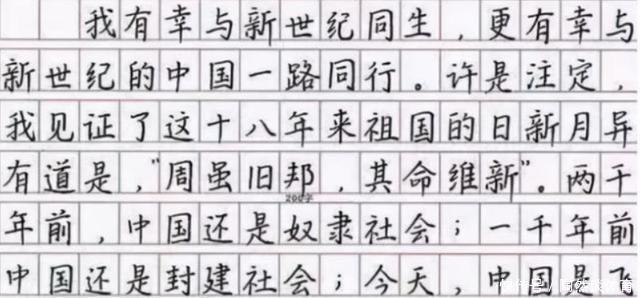 我有幸与新世纪同生，更有幸与
新世纪的中国一路同行。许是注定，
我见证了这十八年来祖国的日新月异
有道是，“周虽旧邦，其命维新”。两千
200字
年前，中国还是奴隶社会；一千年前
中国还是封建社会；今天，中国是